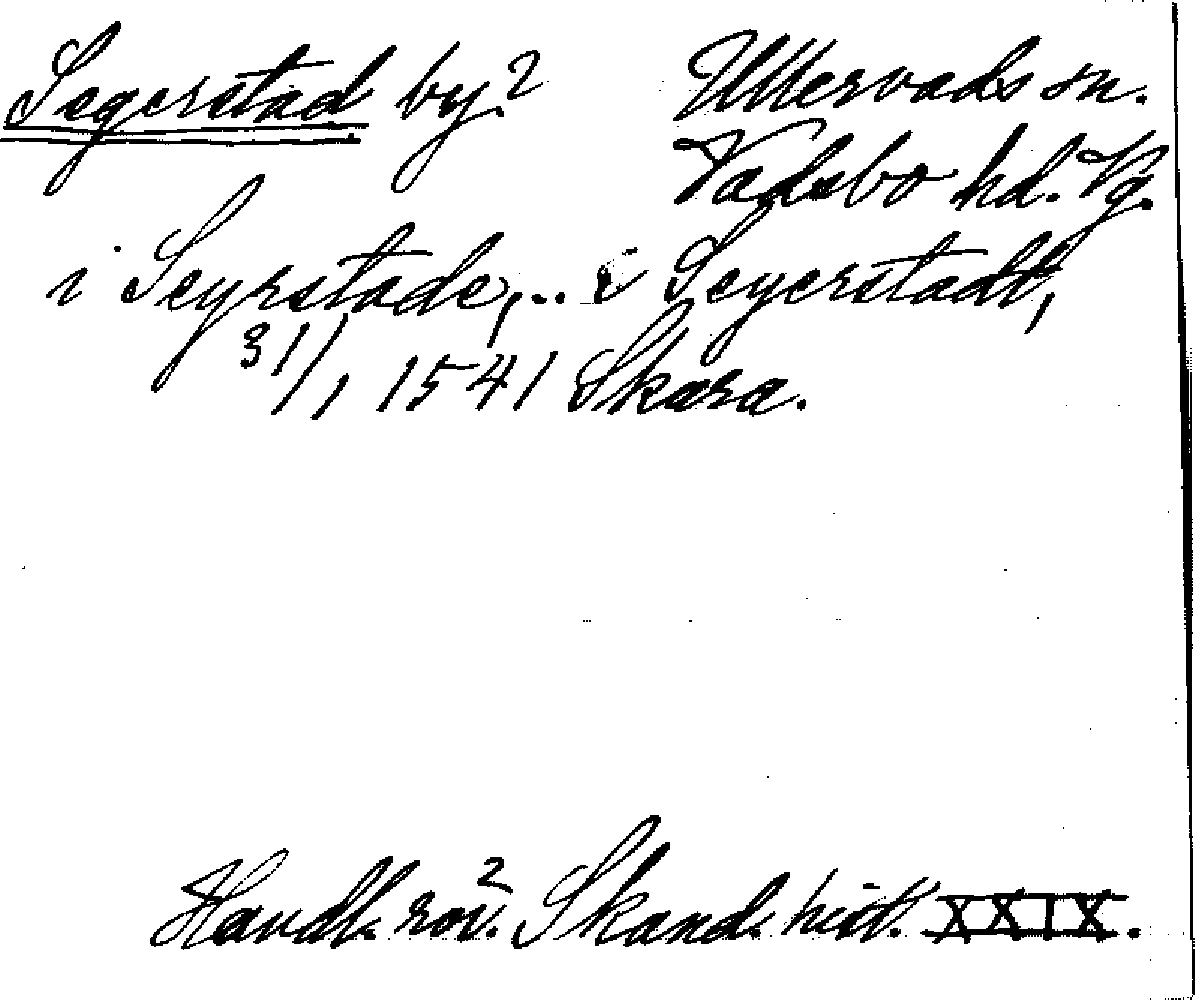 Segerstad by? Ullervads sn.
Vadsbo hd. Vg.
i Seyrstade, .. i Seyerstadt,
31/1 1541 Skara.
Handl. rör. Skand. hist. XXIX.